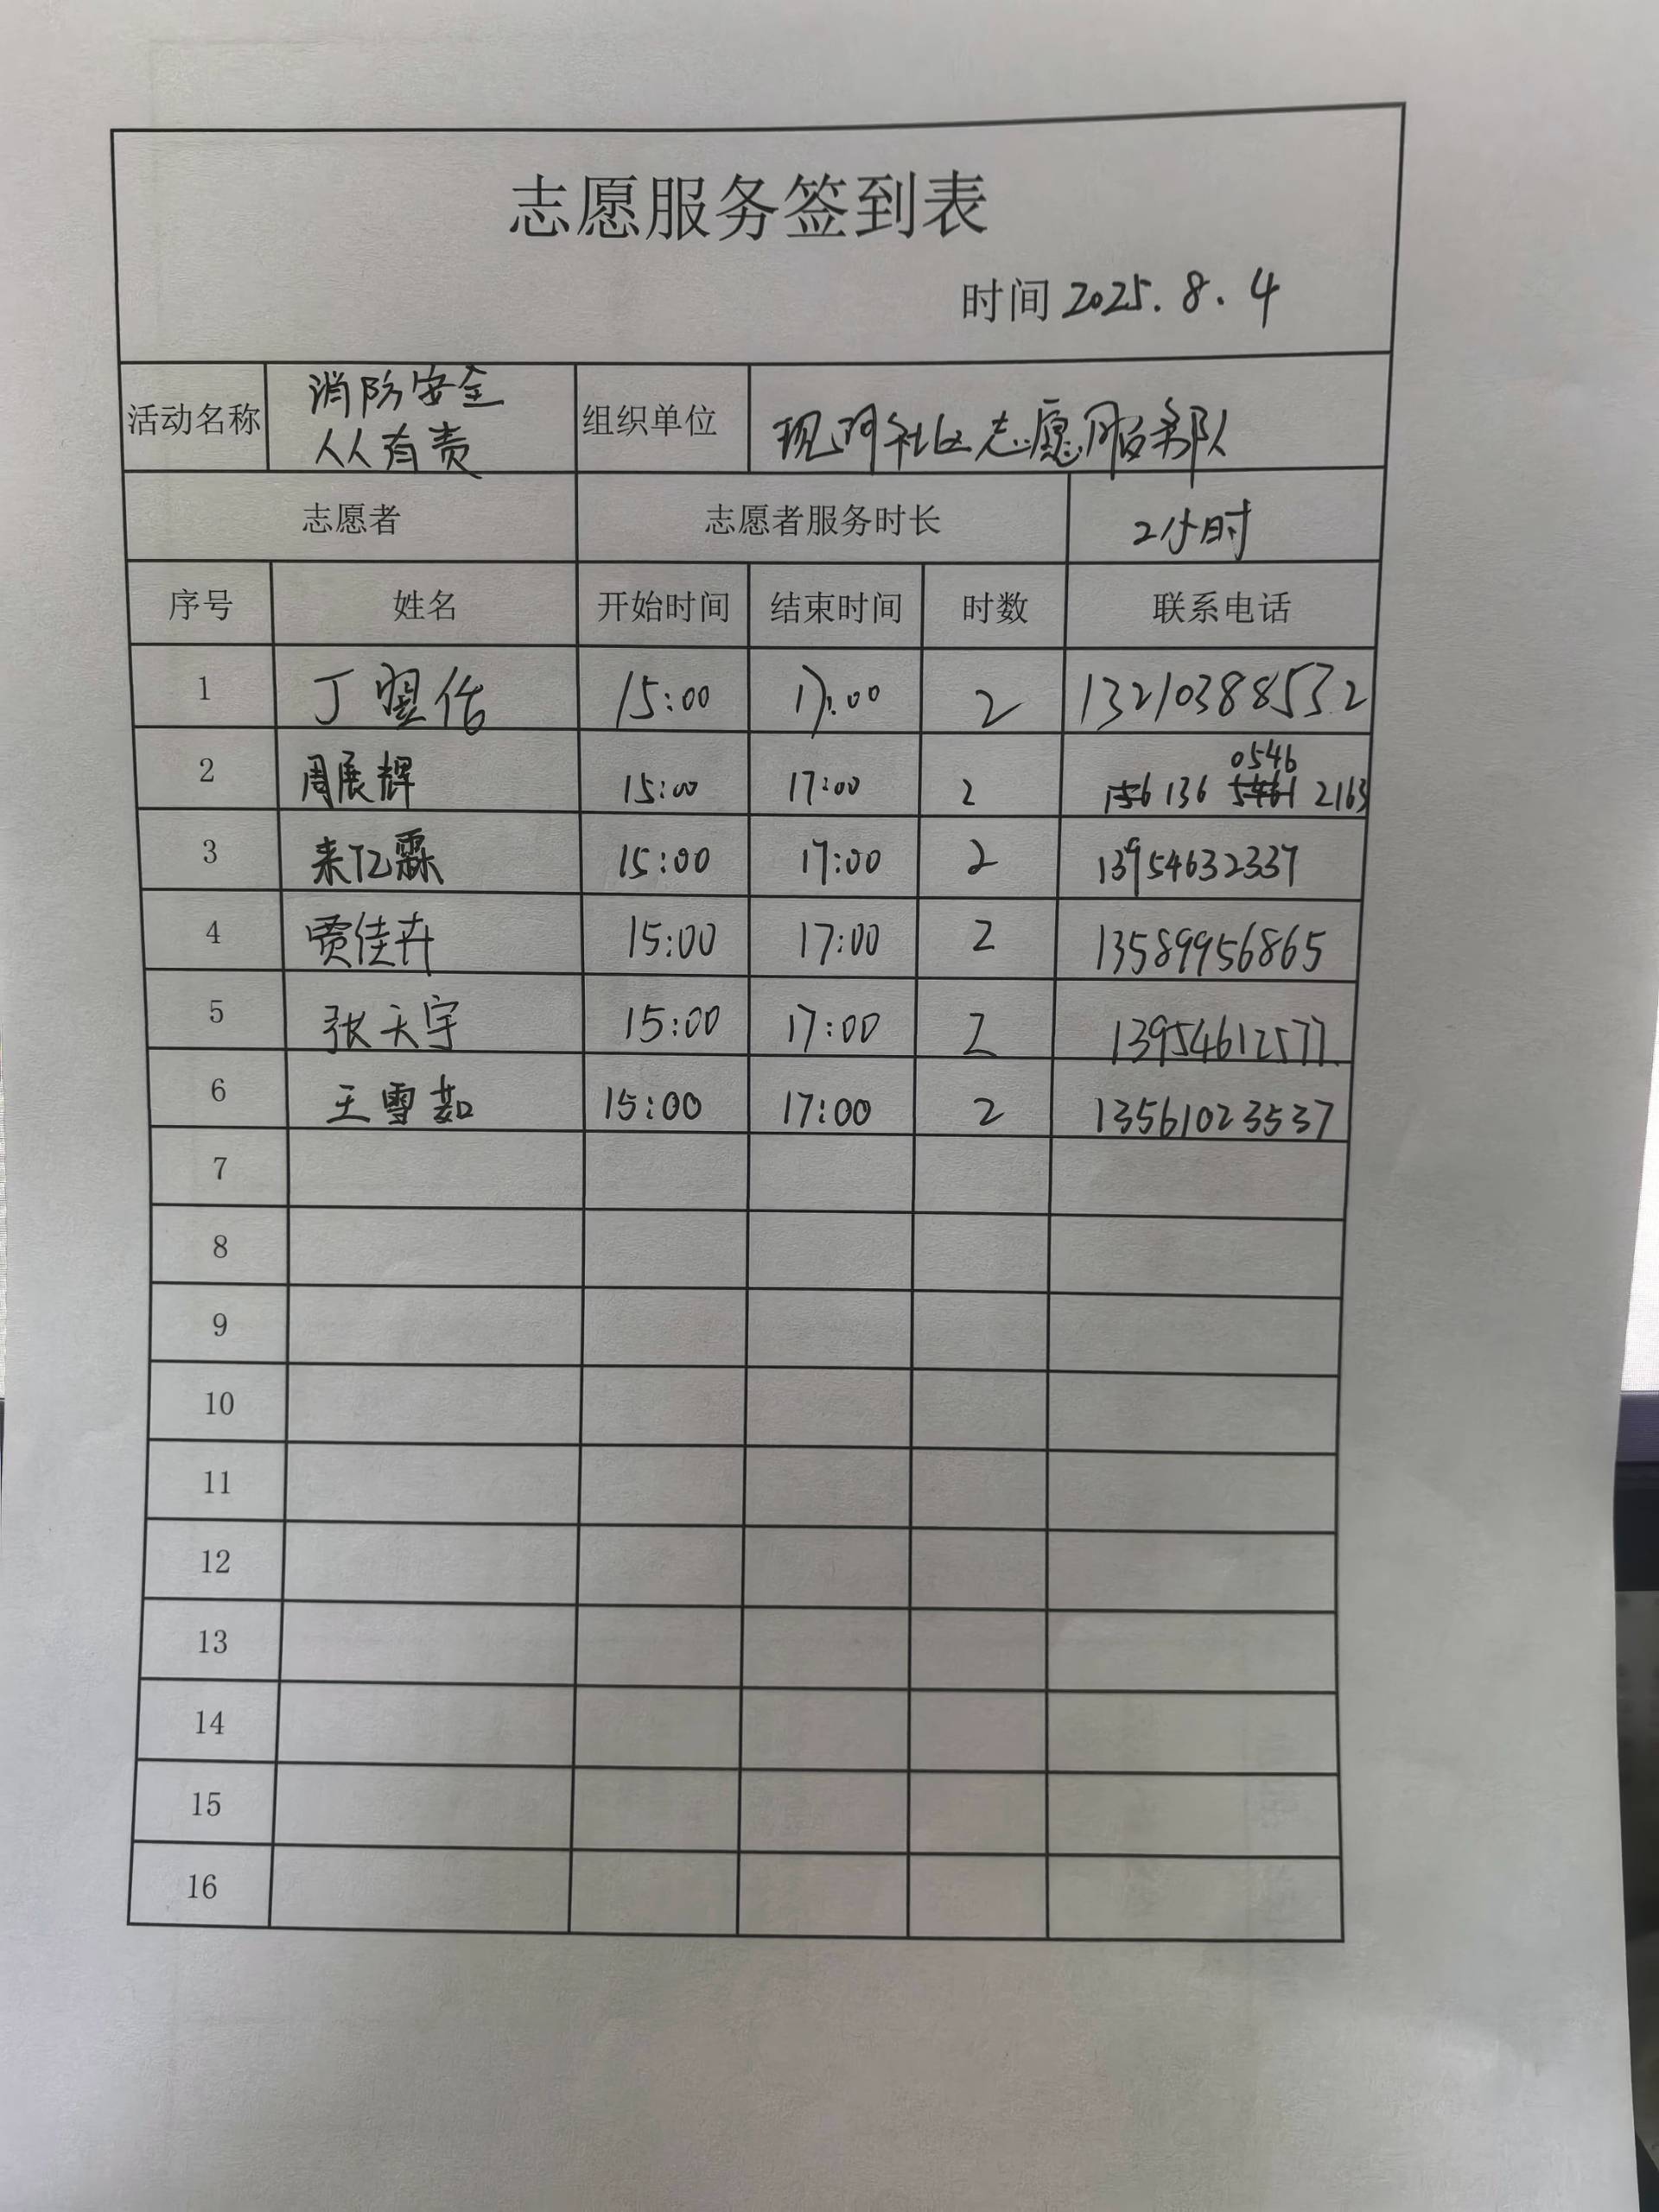 志愿服务签到表
时间 2025.8.4
活动名称 消防安全 人人有责 组织单位 社区志愿服务队
志愿者 志愿者服务时长 2小时
序号 姓名 开始时间 结束时间 时数 联系电话
1 丁 15:00 17:00 2 13210388532
2 周展辉 15:00 17:00 2 136 0546 2163
3 来亿霖 15:00 17:00 2 13954632337
4 贾佳卉 15:00 17:00 2 13589956865
5 张天宇 15:00 17:00 2 13954612577
6 王雪茹 15:00 17:00 2 13561023537
7
8
9
10
11
12
13
14
15
16